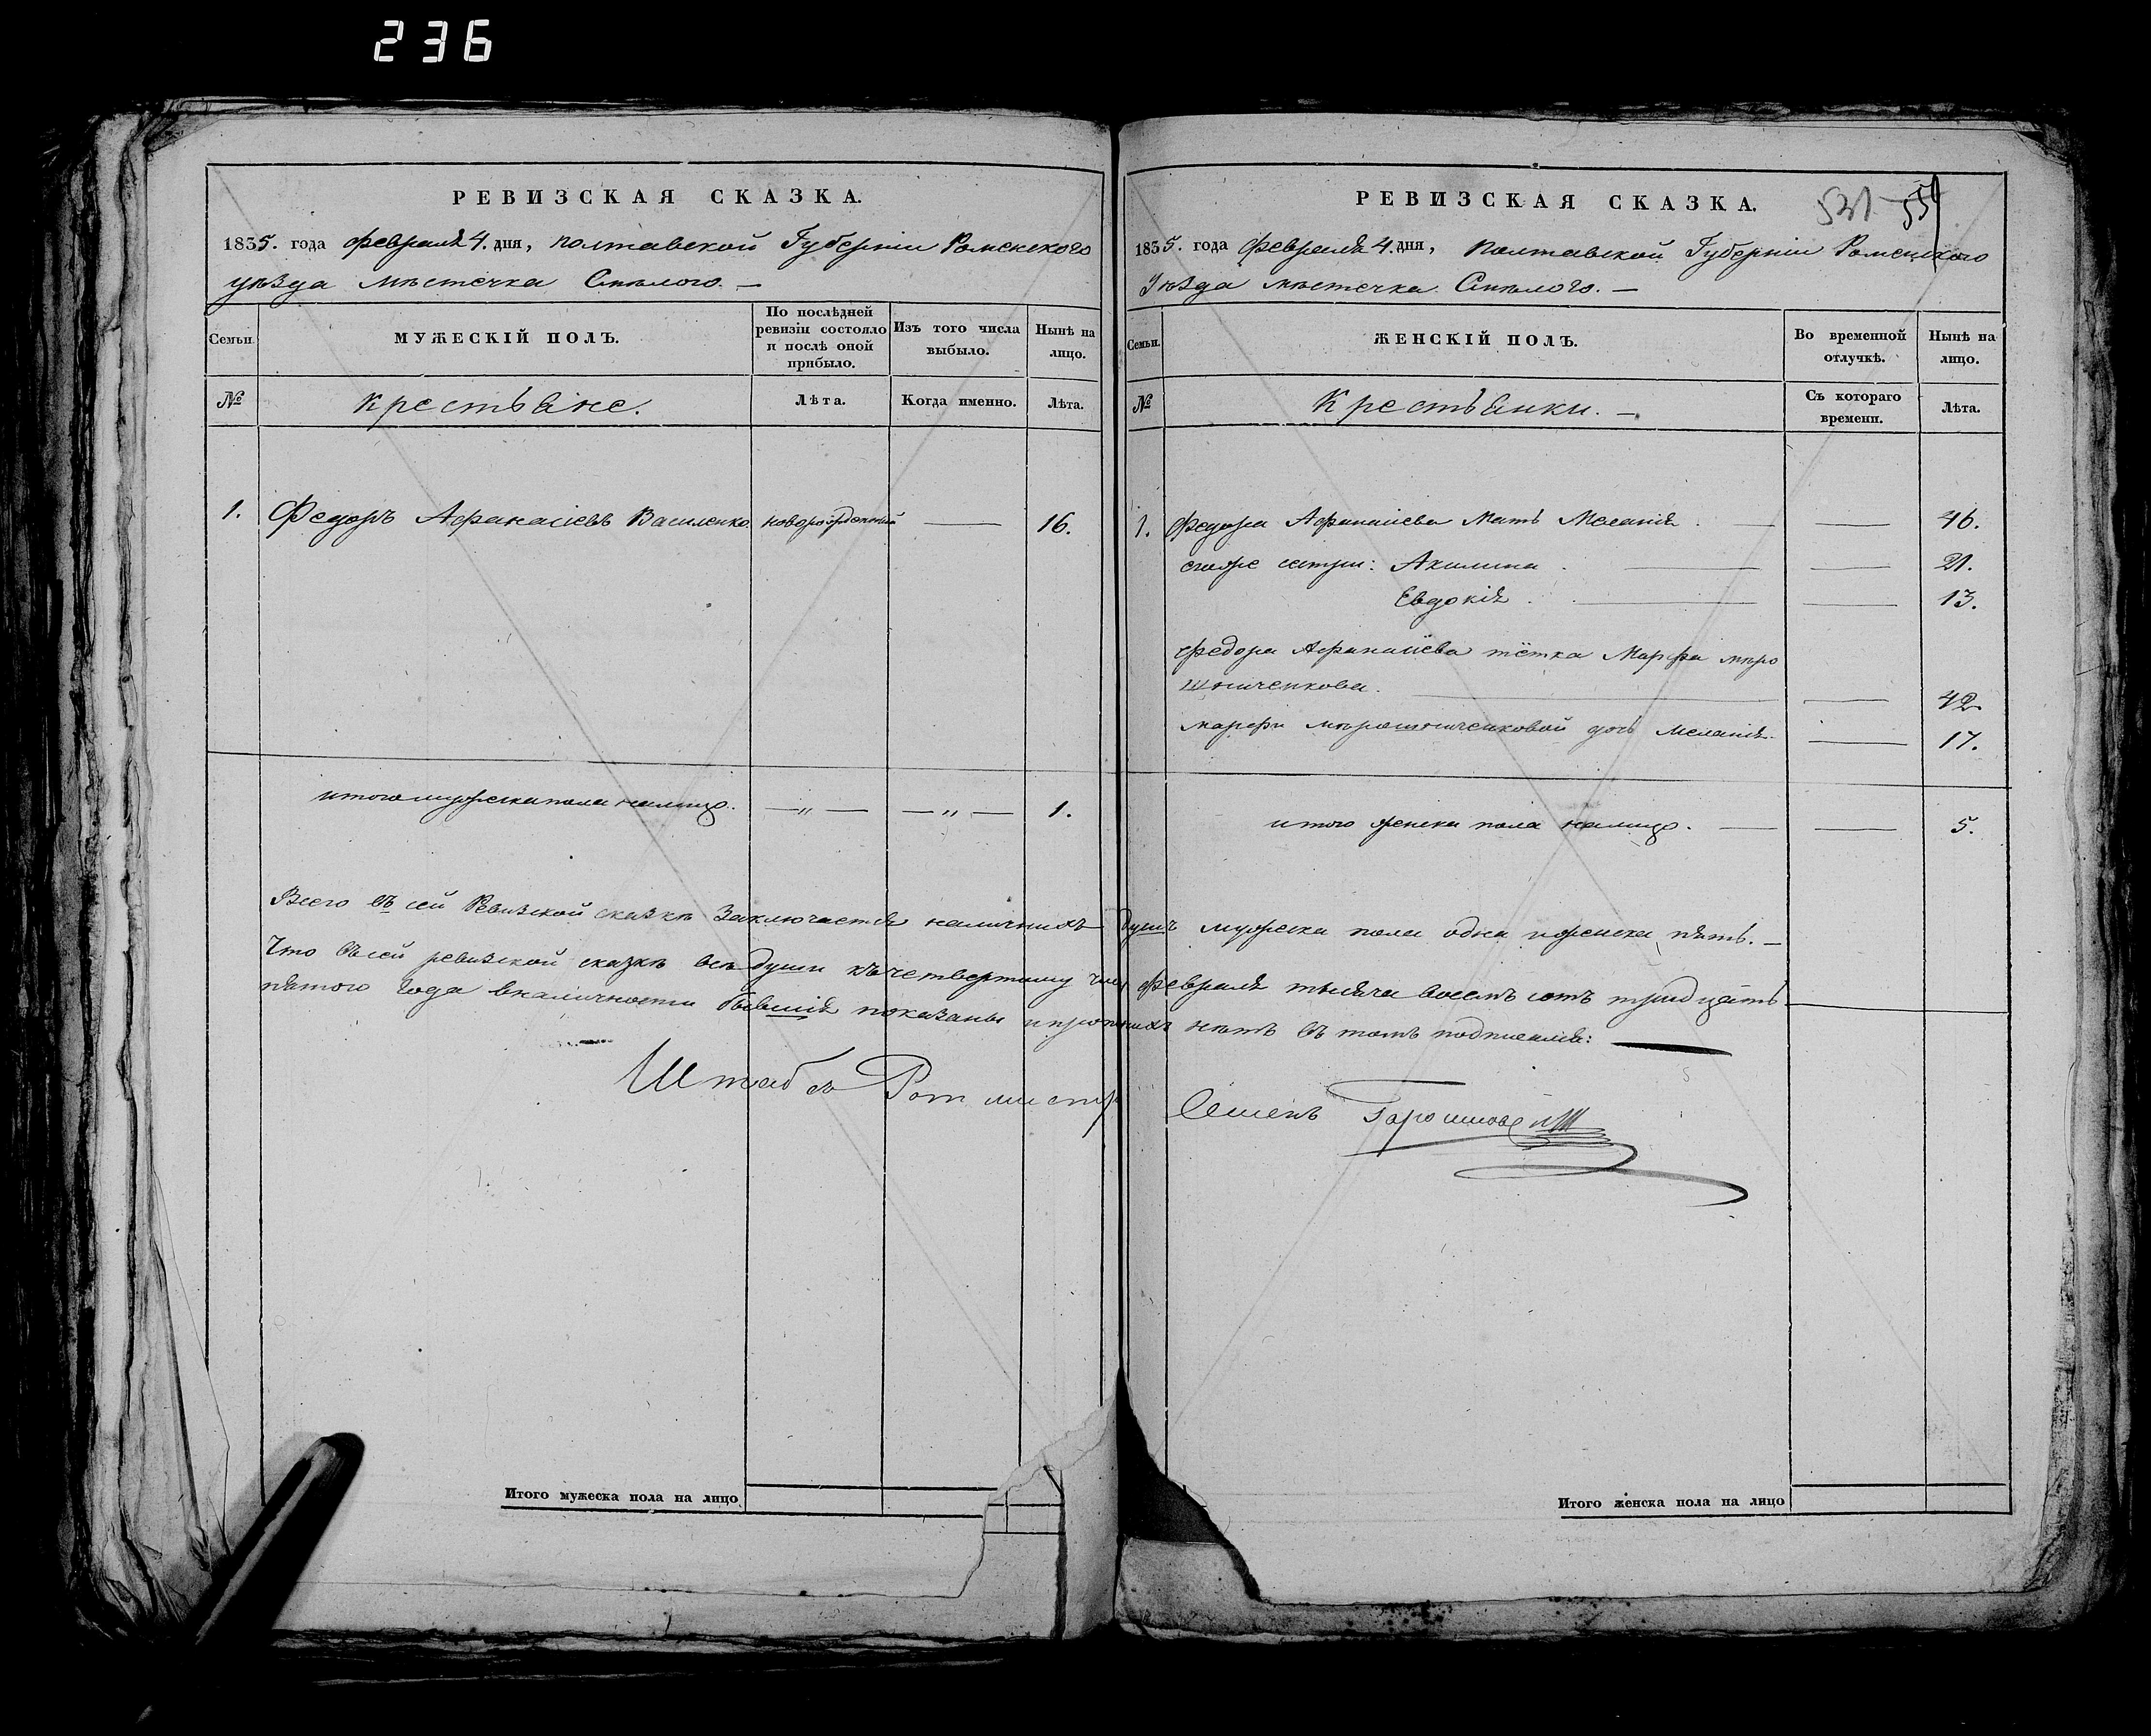 236
РЕВИЗСКАЯ СКАЗКА.
1835. года Февраля 4. дня, Полтавской Губерніи Роменского
уѣзда мѣстечка Смѣлого. —
Семьи.
МУЖЕСКІЙ ПОЛЪ.
По послѣдней ревизіи состояло и послѣ оной прибыло.
Изъ того числа выбыло.
Нынѣ на лицо.
№
Крестьяне.
Лѣта.
Когда именно.
Лѣта.
1. Федоръ Афанасіевъ Василенко новорожденный — 16.
итого мужеска пола налицо. — „ — — „ — 1.
РЕВИЗСКАЯ СКАЗКА.
531 554
1835. года Февраля 4. дня, Полтавской Губерніи Роменского
Уѣзда мѣстечка Смѣлого. —
Семьи.
ЖЕНСКІЙ ПОЛЪ.
Во временной отлучкѣ.
Нынѣ на лицо.
№
Крестьянки. —
Съ котораго времени.
Лѣта.
1. Федора Афанасіева Мать Меланія. — — 46.
егоже сестры: Акилина. — — 21.
Евдокія. — — 13.
Федора Афанасіева тётка Марфа миро
шниченкова. — — 42
марфы мирошниченковой дочь Меланія. — 17.
итого женска пола налицо. — — 5.
Всего въ сей Ревизской сказкѣ Заключается наличныхъ душъ мужеска пола одна и женска пять. —
Что въ сей ревизской сказкѣ всѣ души къ четвертому числу Февраля тысяча восемъ сотъ тридцать
пятого года в наличности бывшія показаны и прописныхъ нѣтъ въ томъ подписался: —
Штабсъ Ротмистръ Семенъ
Итого мужеска пола на лицо
Итого женска пола на лицо